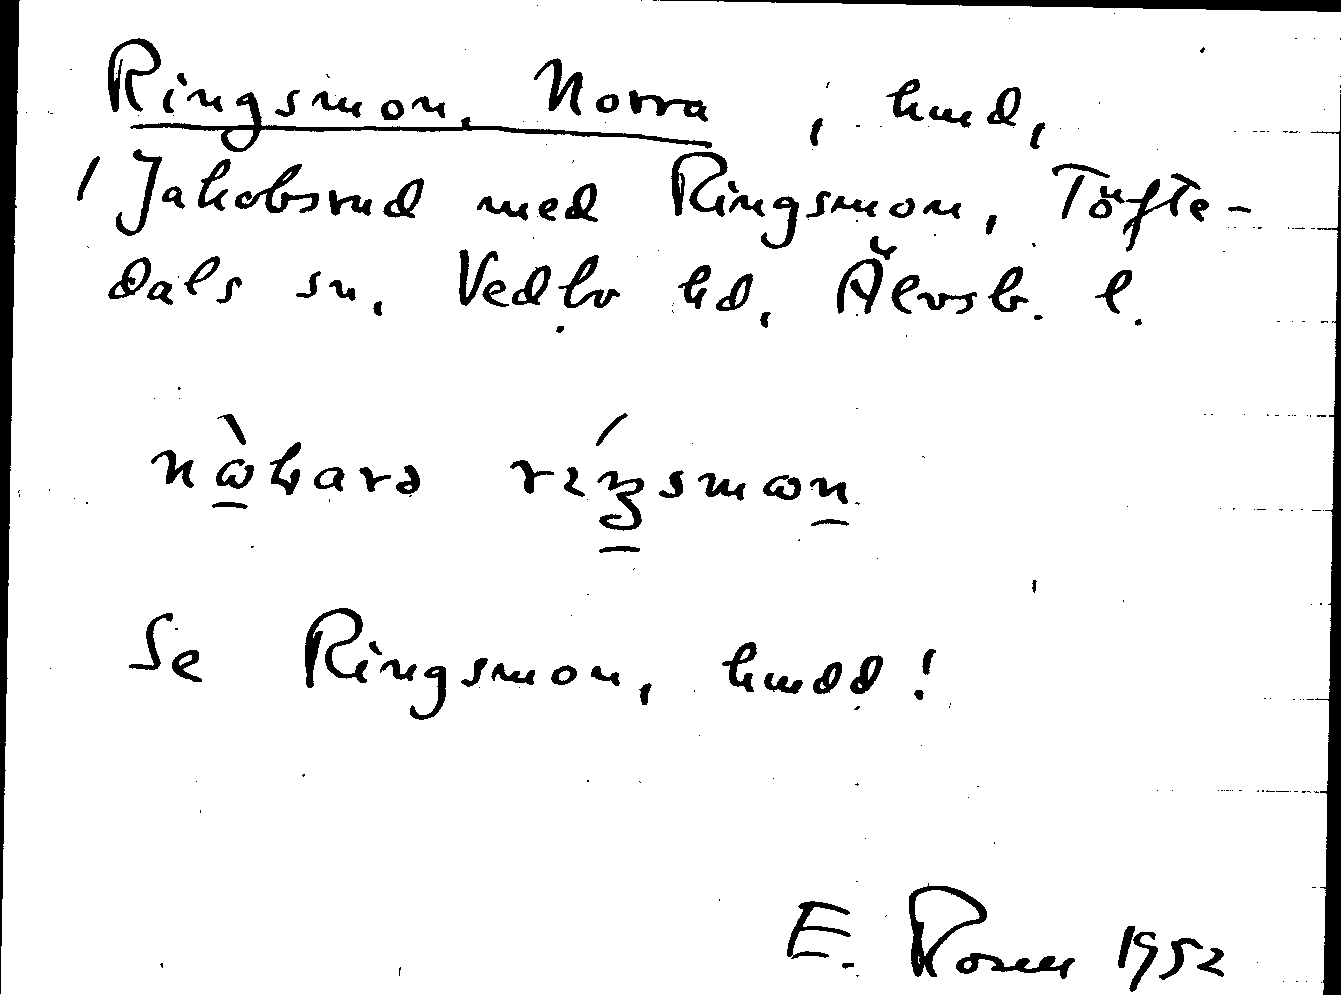 Ringsmon, Norra, hmd,
/ Jakobsrud med Ringsmon, Töfte-
dals sn, Vedbo hd, Älvsb. l.
Se Ringsmon, hmdd!
E. Rosell 1952